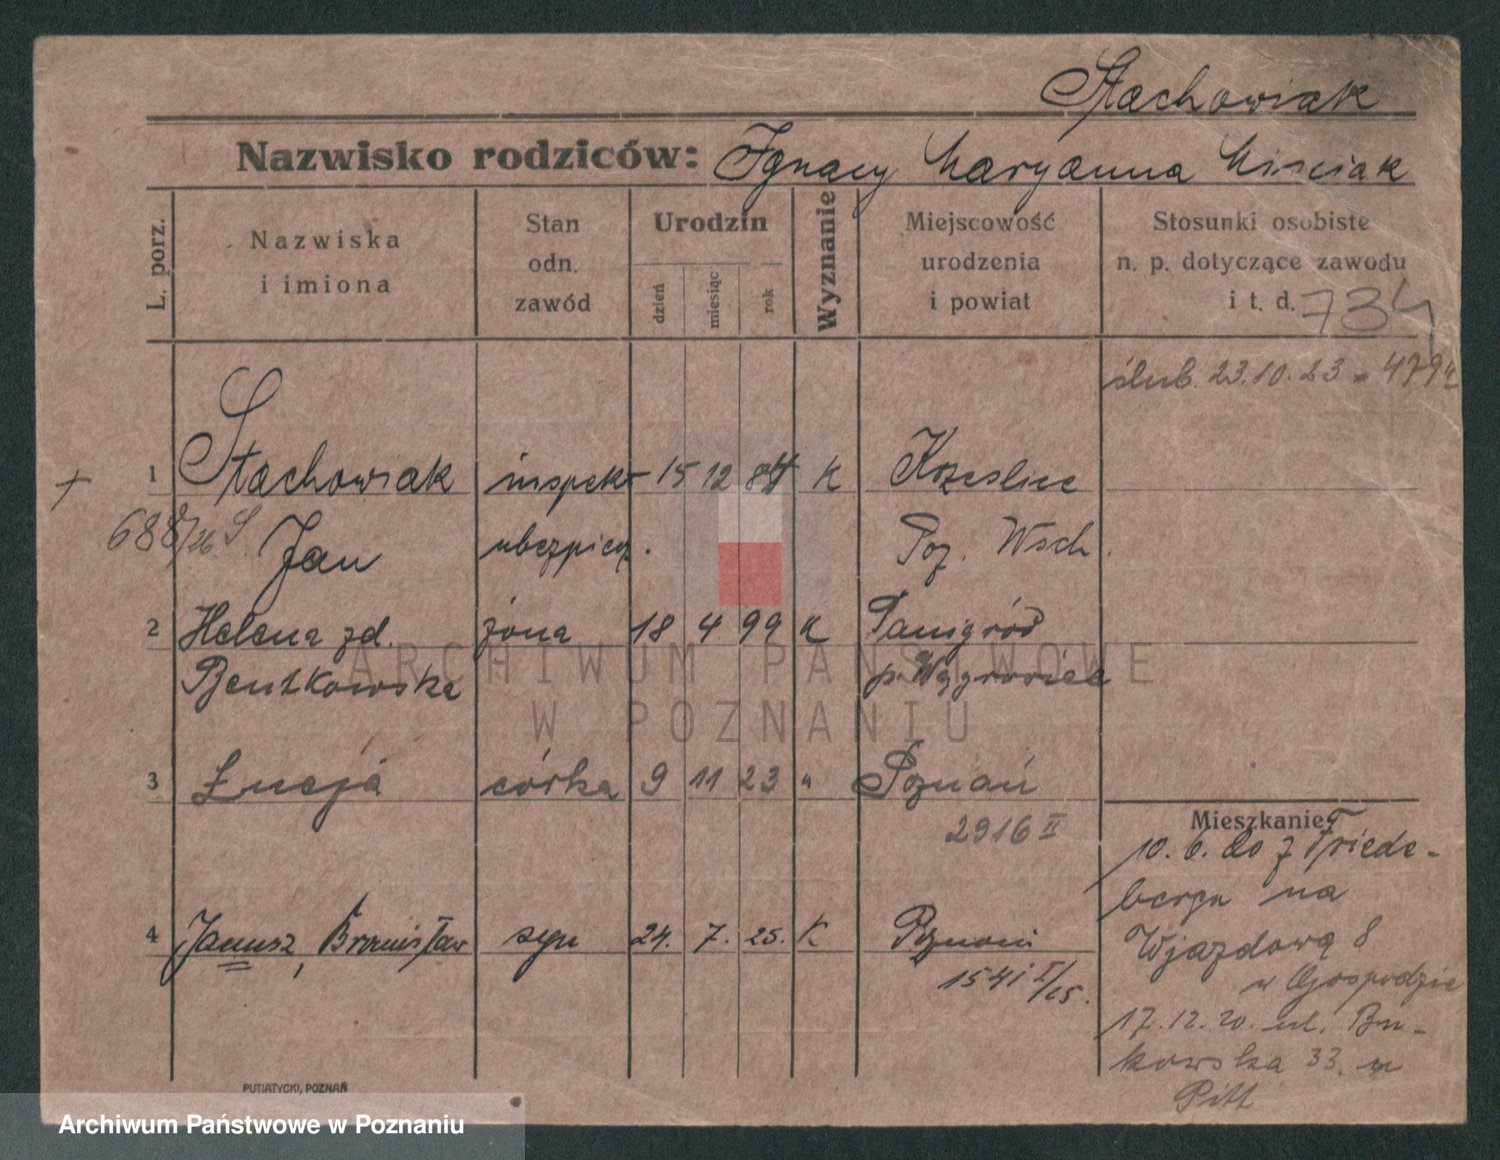 Stachowiak
Nazwisko rodziców: Ignacy Maryanna Misciak
L. porz.
Nazwiska
i imiona
Stan
odn.
zawód
Urodzin
dzień
miesiąc
rok
Wyznanie
Miejscowość
urodzenia
i powiat
Stosunki osobiste
n. p. dotyczące zawodu
i t. d.
734
ślub. 23.10.23
1 Stachowiak inspekt 15 12 84 K Krześlice
688/26 S Jan ubezpiecz. Poz. Wsch.
2 Helena zd. żona 18 4 99 K Panigród
Bentkowska p. Wągrowiec
3 Łucja córka 9 11 23 " Poznań
2916 II
Mieszkanie
10. 6. do z Friede-
berga na
4 Janusz, Bronisław syn 24. 7. 25. K Poznań
1541 I/25.
Wjazdową 8
w Gospodzie
17.12.20. ul. Bu-
kowska 33. u
Pitt
PUTIATYCKI, POZNAŃ
ARCHIWUM PAŃSTWOWE
W POZNANIU
Archiwum Państwowe w Poznaniu